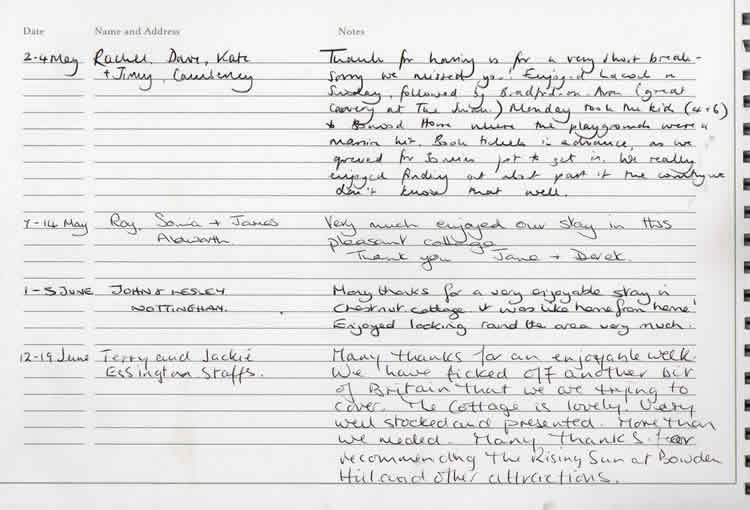 Date Name and Address Notes
2-4 May Rachel, Dave, Kate
+ Jimmy, Courteney
Thanks for having us for a very short break -
sorry we missed you! Enjoyed Lacock on
Sunday, followed by Bradford-on-Avon (great
at The ) Monday took the kids (4+6)
to Bowood House where the playgrounds were a
massive hit. Book tickets in advance, as we
queued for 30 mins just to get in. We really
enjoyed finding out about part of the country we
don't know that well.
7-14 May Roy, Sonia + James
Aldworth.
Very much enjoyed our stay in this
pleasant cottage
Thank you Jane + Derek.
1-5 JUNE JOHN & LESLEY
NOTTINGHAM.
Many thanks for a very enjoyable stay in
Chestnut cottage it was like home from home!
Enjoyed looking round the area very much.
12-19 June Terry and Jackie
Essington Staffs.
Many thanks for an enjoyable week.
We have ticked off another bit
of Britain that we are trying to
cover. The Cottage is lovely! Very
well stocked and presented. More than
we needed. Many thanks for
recommending The Rising Sun at Bowden
Hill and other attractions.